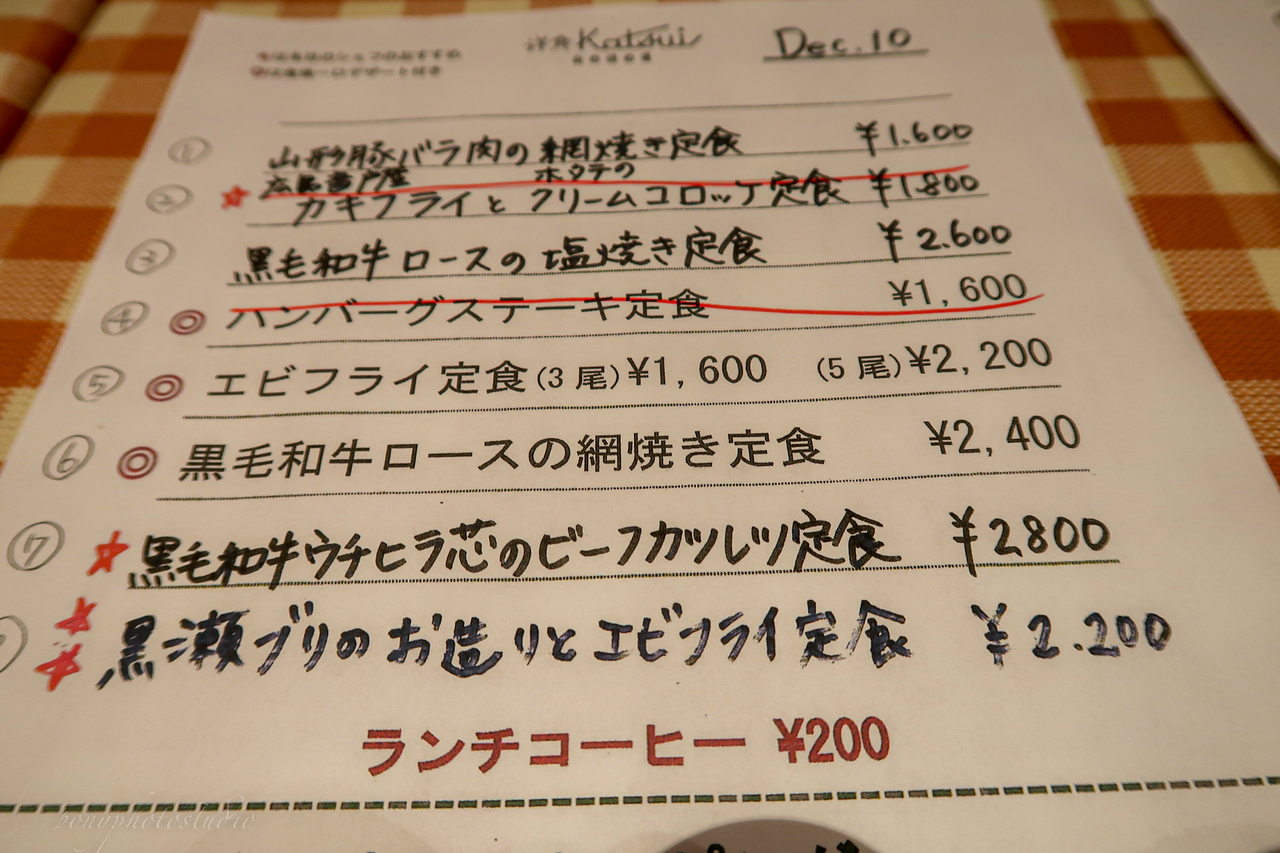 洋食 Katsui
Dec.10
① 山形豚バラ肉の網焼き定食 ¥1.600
② ★ 広島音戸産 ホタテの
カキフライと クリームコロッケ定食 ¥1.800
③ 黒毛和牛ロースの塩焼き定食 ¥2.600
④ ◎ ハンバーグステーキ定食 ¥1,600
⑤ ◎ エビフライ定食(3尾)¥1,600 (5尾)¥2,200
⑥ ◎ 黒毛和牛ロースの網焼き定食 ¥2,400
⑦ ★ 黒毛和牛ウチヒラ芯のビーフカツレツ定食 ¥2800
★★ 黒瀬ブリのお造りとエビフライ定食 ¥2.200
ランチコーヒー ¥200
bonyphotostudio